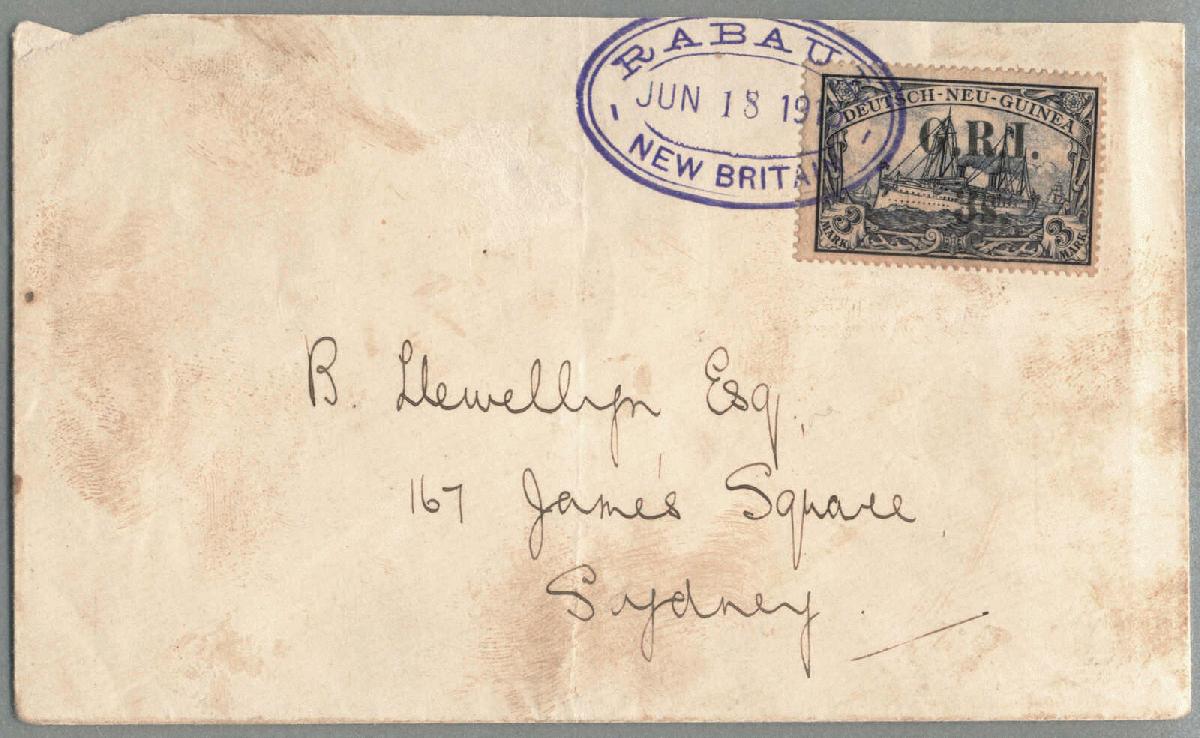 RABAUL
JUN 18 191
NEW BRITAIN
DEUTSCH-NEU-GUINEA
G.R.I.
3s.
3 MARK
3 MARK
B. Llewellyn Esq.
167 James Square
Sydney.